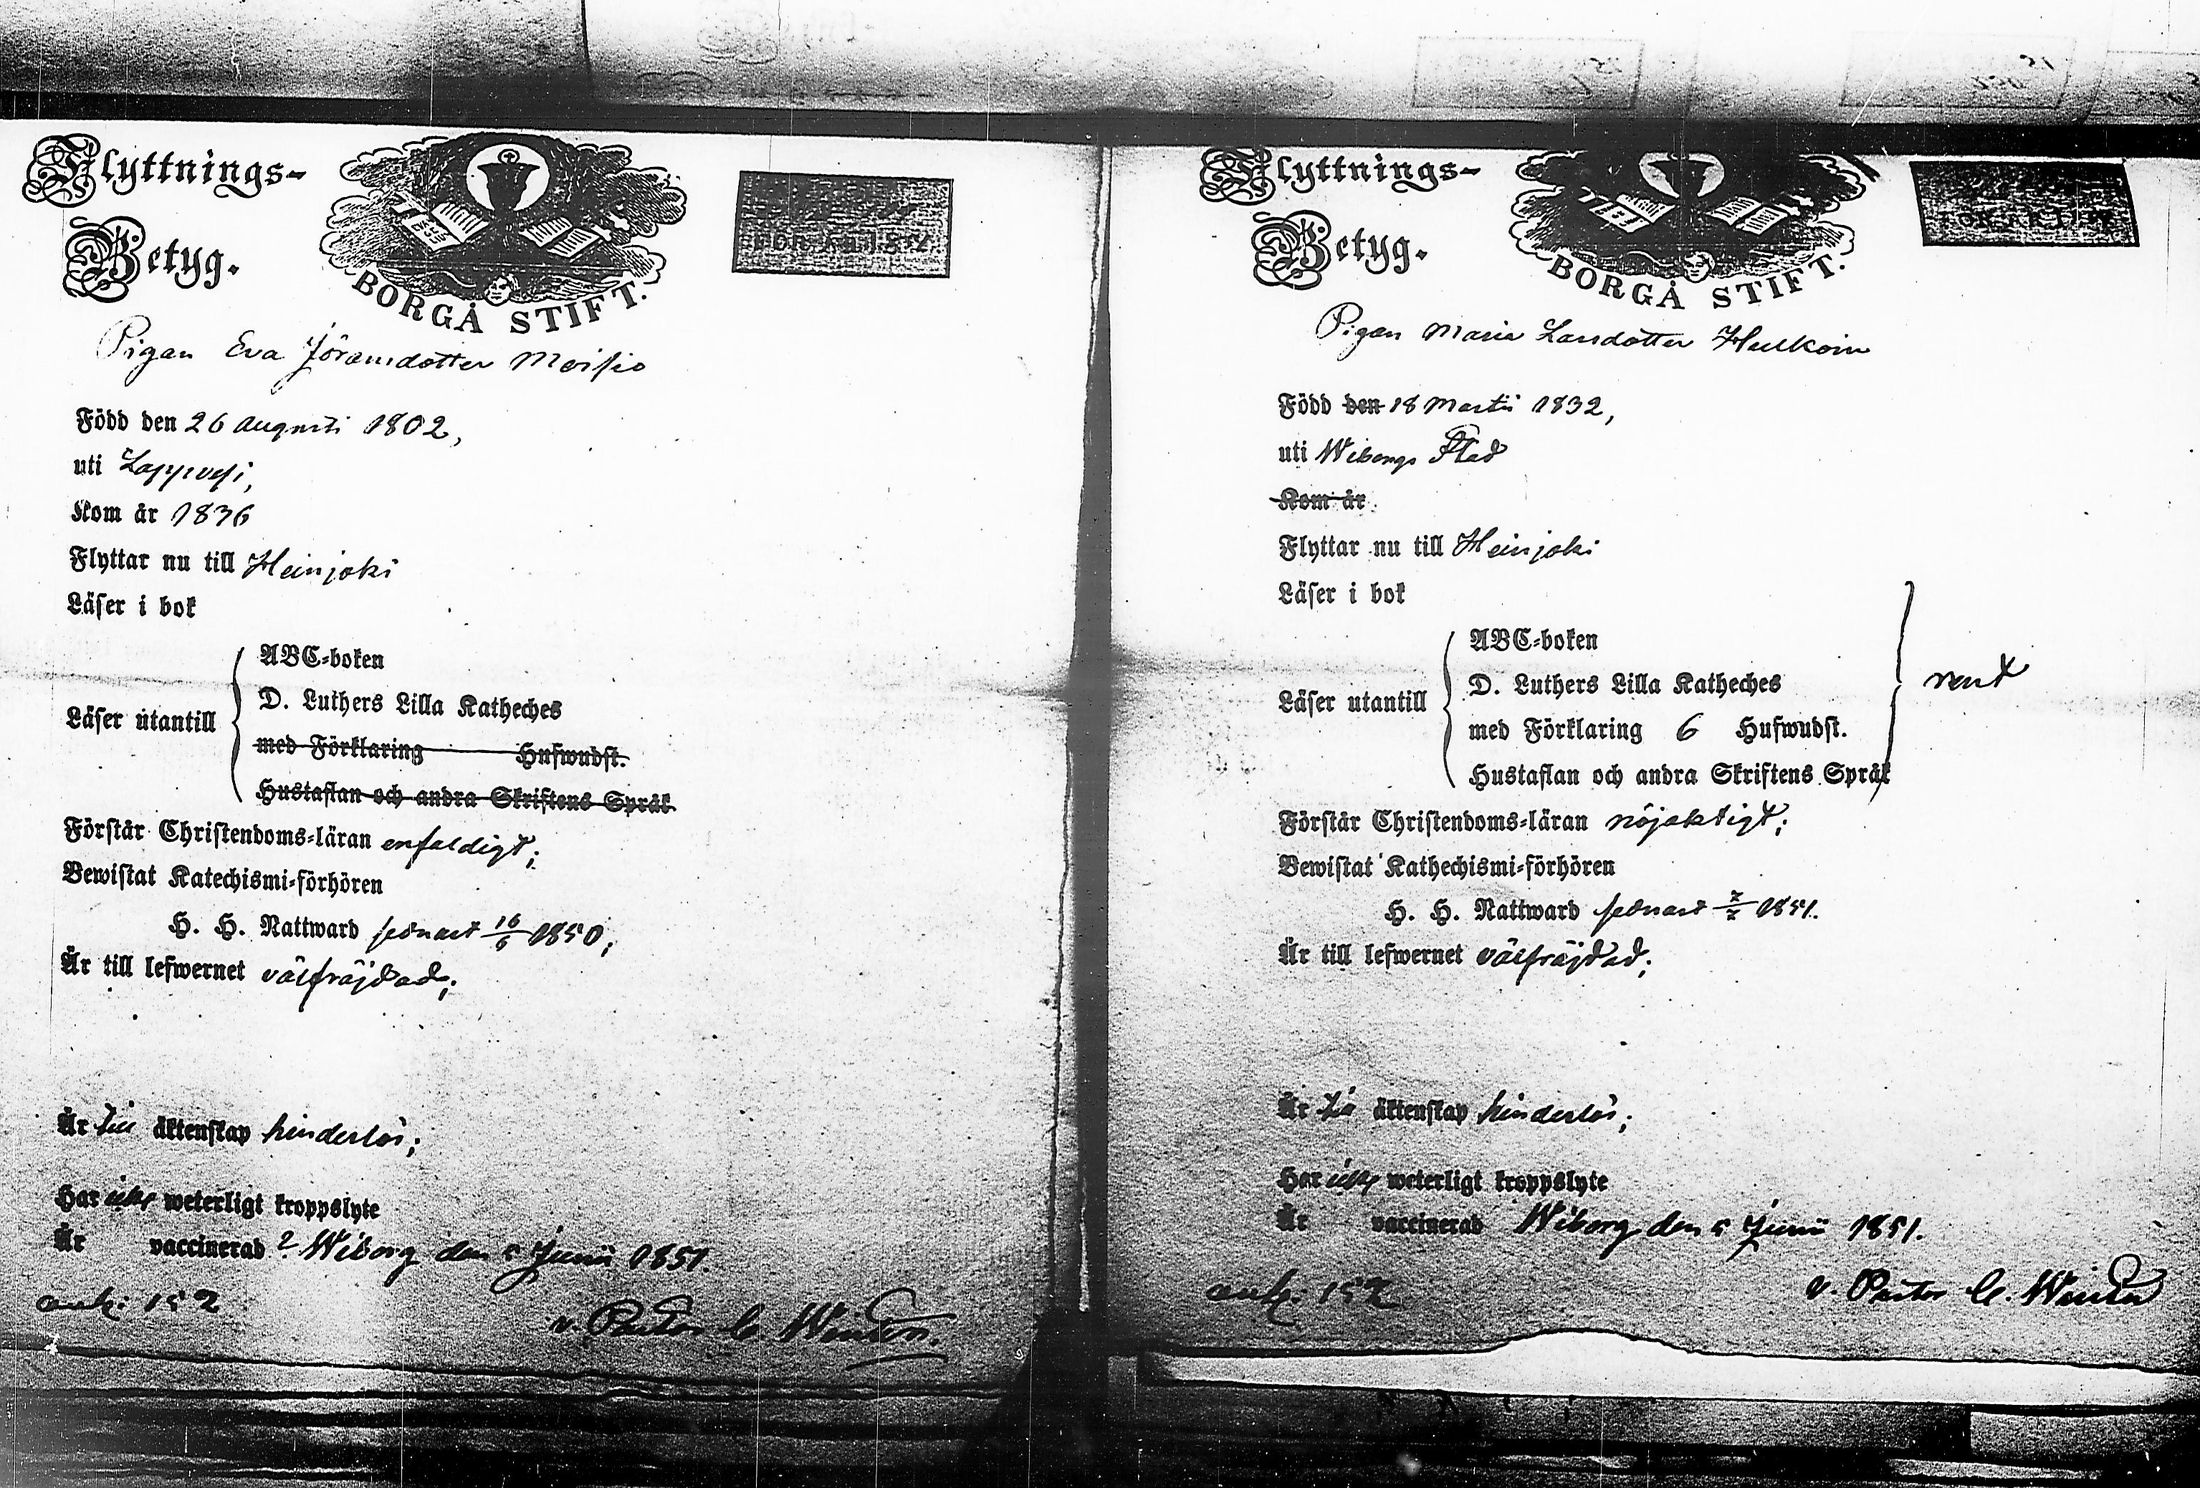 Flyttnings-
Betyg.
BORGÅ STIFT.
Pigan Eva Jöransdotter Moisio
Född den 26 Augusti 1802,
uti Lappvesi,
Kom år 1836
Flyttar nu till Heinjoki
Läser i bok
Läser utantill
ABC-boken
D. Luthers Lilla Katheches
med Förklaring Hufwudst.
Hustaflan och andra Skriftens Språk
Förstår Christendoms-läran enfaldigt;
Bewistat Katechismi-förhören
H. H. Nattward senast 16/6 1850;
Är till lefwernet välfräjdad;
Är till äktenskap hinderlös;
Har icke weterligt kroppslyte
Är vaccinerad ? Wiborg den 5 Junii 1851.
ank: 152
v. Pastor C. Winter.
Flyttnings-
Betyg.
BORGÅ STIFT.
Pigan Maria Larsdotter
Född den 18 Martii 1832,
uti Wiborgs Stad
Kom år
Flyttar nu till Heinjoki
Läser i bok
Läser utantill
ABC-boken
D. Luthers Lilla Katheches
med Förklaring 6 Hufwudst.
Hustaflan och andra Skriftens Språk
rent
Förstår Christendoms-läran nöjaktigt;
Bewistat Kathechismi-förhören
H. H. Nattward senast 2/2 1851.
Är till lefwernet välfräjdad;
Är till äktenskap hinderlös;
Har icke weterligt kroppslyte
Är vaccinerad Wiborg den 5 Junii 1851.
ank: 152
v. Pastor C. Winter